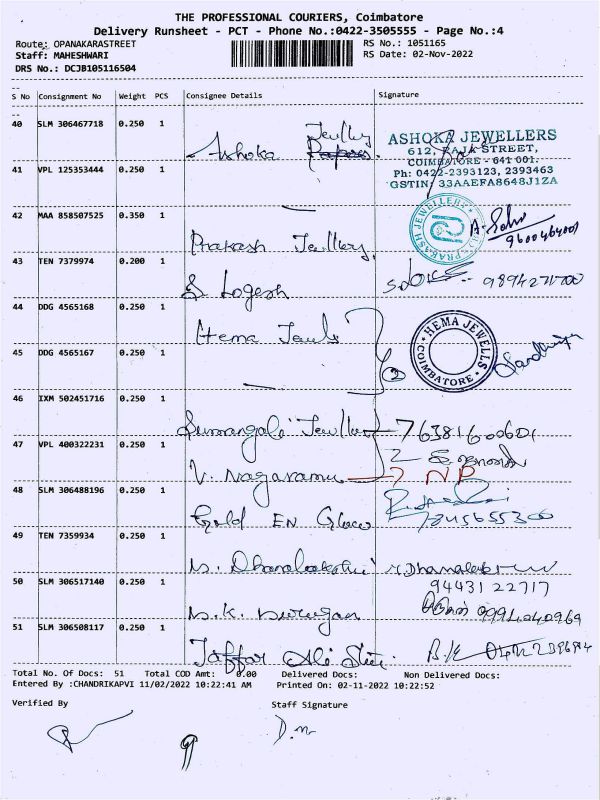 THE PROFESSIONAL COURIERS, Coimbatore
Delivery Runsheet - PCT - Phone No.:0422-3505555 - Page No.:4
Route: OPANAKARASTREET
RS No.: 1051165
Staff: MAHESHWARI
RS Date: 02-Nov-2022
DRS No.: DCJB105116504
S No Consignment No Weight PCS Consignee Details Signature
40 SLM 306467718 0.250 1 Ashoka Jewllry
ASHOKA JEWELLERS
612, RAJA STREET,
COIMBATORE - 641 001.
Ph: 0422-2393123, 2393463
GSTIN: 33AAEFA8648J1ZA
41 VPL 125353444 0.250 1
42 MAA 858507525 0.350 1 Prakash Jewllery
PRAKASH JEWELLERY
9600464001
43 TEN 7379974 0.200 1 S Logesh
44 DDG 4565168 0.250 1 Hema Jewls
HEMA JEWELS
COIMBATORE
45 DDG 4565167 0.250 1
2
46 IXM 502451716 0.250 1 Sumangali Jewllery 76381600601
47 VPL 400322231 0.250 1 V. Nagaramu NP
48 SLM 306488196 0.250 1 Gold EN Glow
49 TEN 7359934 0.250 1 N. Dhanalakshmi
94431 22717
50 SLM 306517140 0.250 1 N.K. Murugan
9994040969
51 SLM 306508117 0.250 1 Jaffar Ali
Total No. Of Docs: 51 Total COD Amt: 0.00 Delivered Docs: Non Delivered Docs:
Entered By :CHANDRIKAPVI 11/02/2022 10:22:41 AM Printed On: 02-11-2022 10:22:52
Verified By Staff Signature